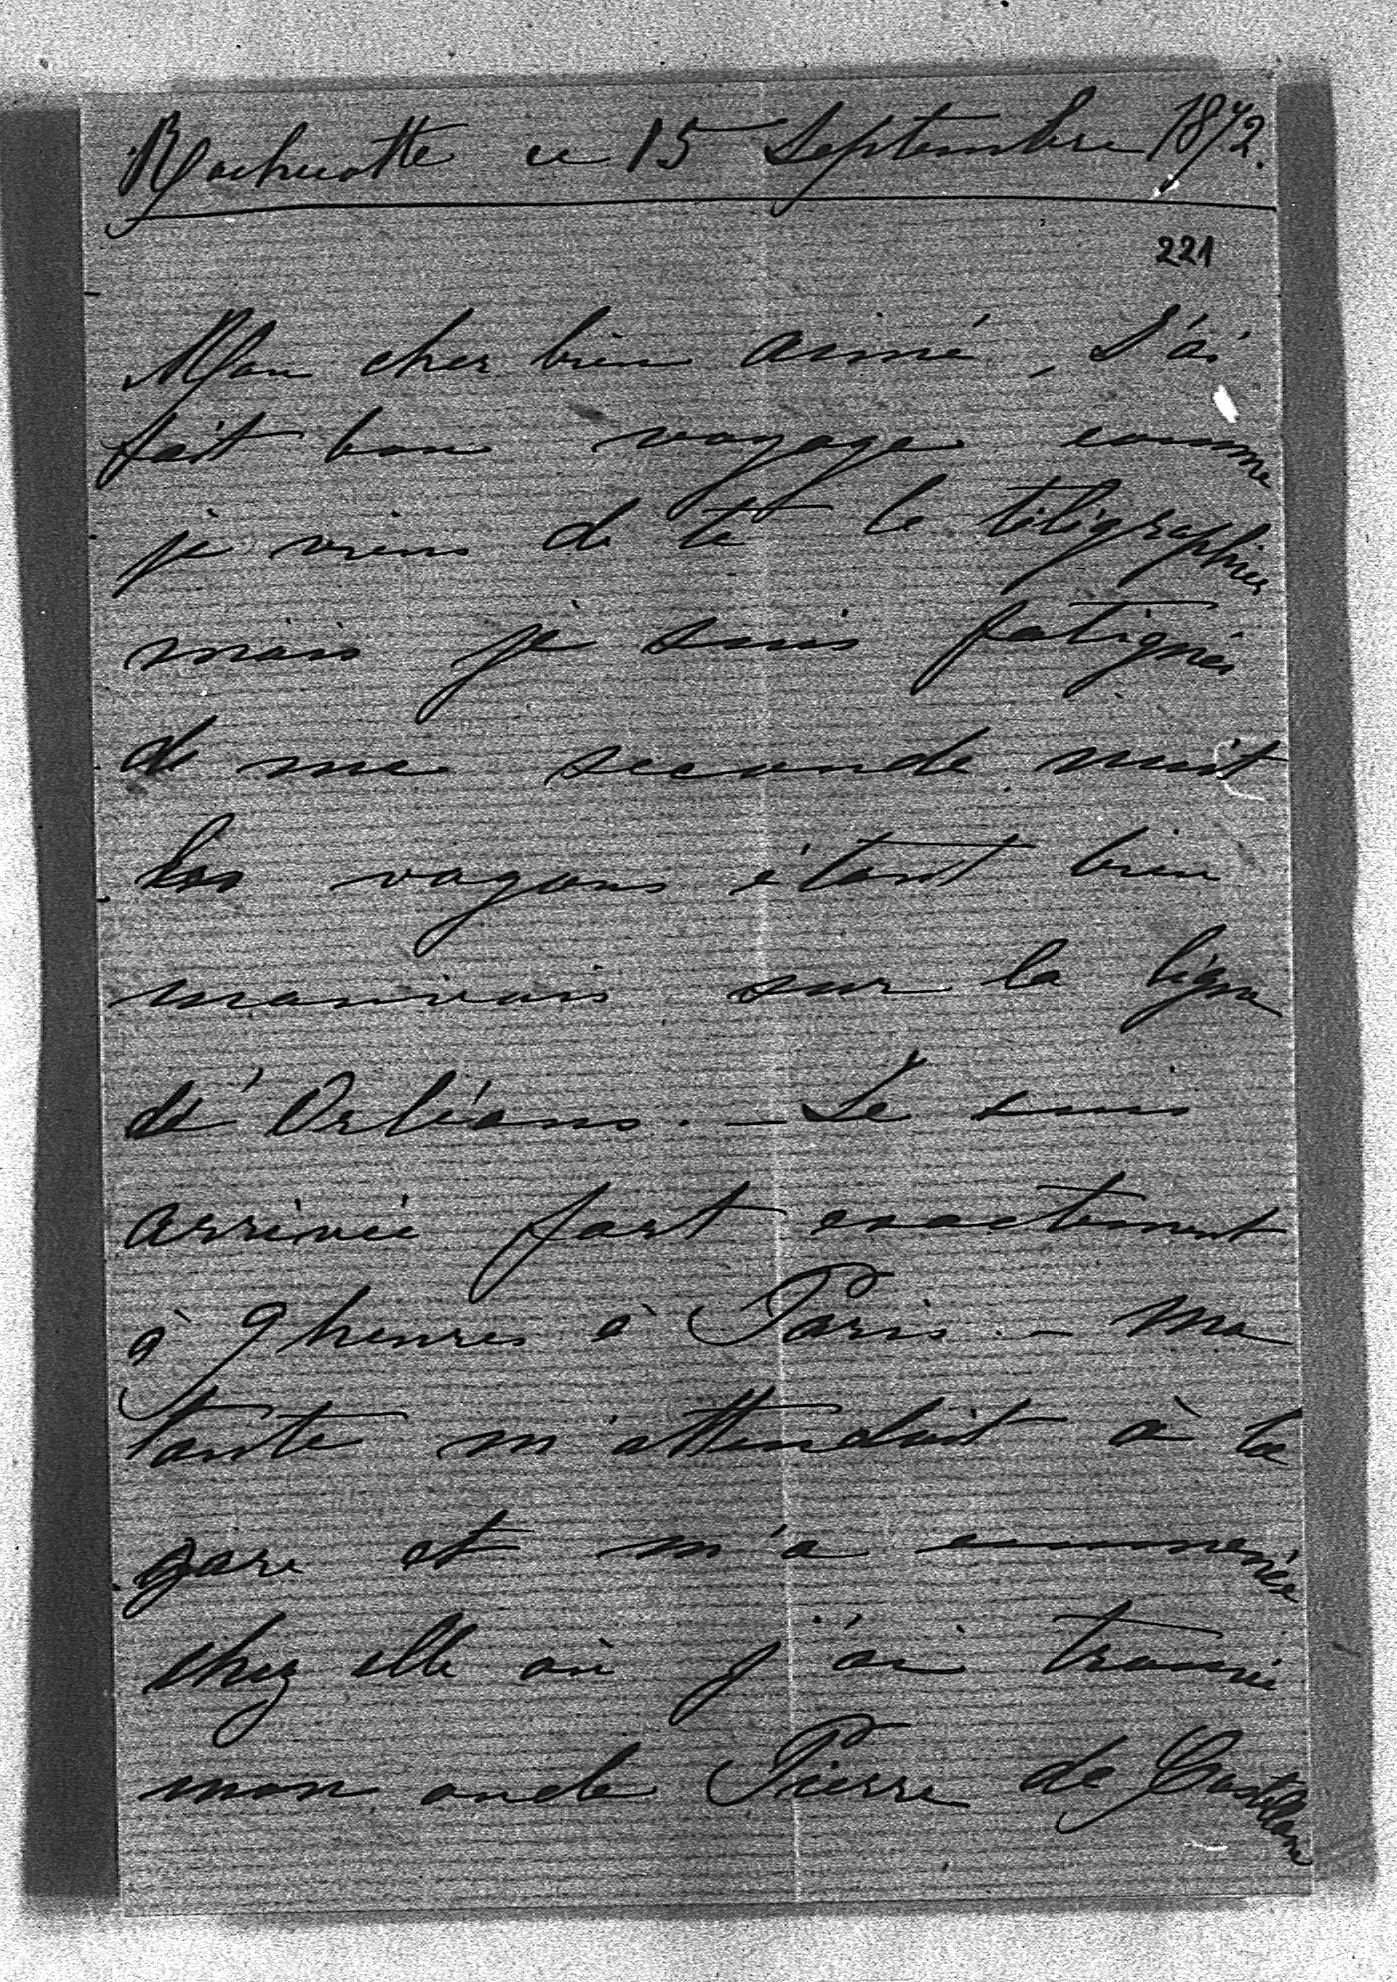 Rochecotte ce 15 Septembre 1872.
221
Mon cher bien aimé, J'ai
fait bon voyage comme
je viens de te le télégraphier
mais je suis fatiguée
de ma seconde nuit
les vagons étant bien
mauvais sur la ligne
d'Orléans. - Je suis
arrivée fort exactement
à 9 heures à Paris. - Ma
tante m'attendait à la
gare et m'a emmenée
chez elle où j'ai trouvé
mon oncle Pierre de Castellane